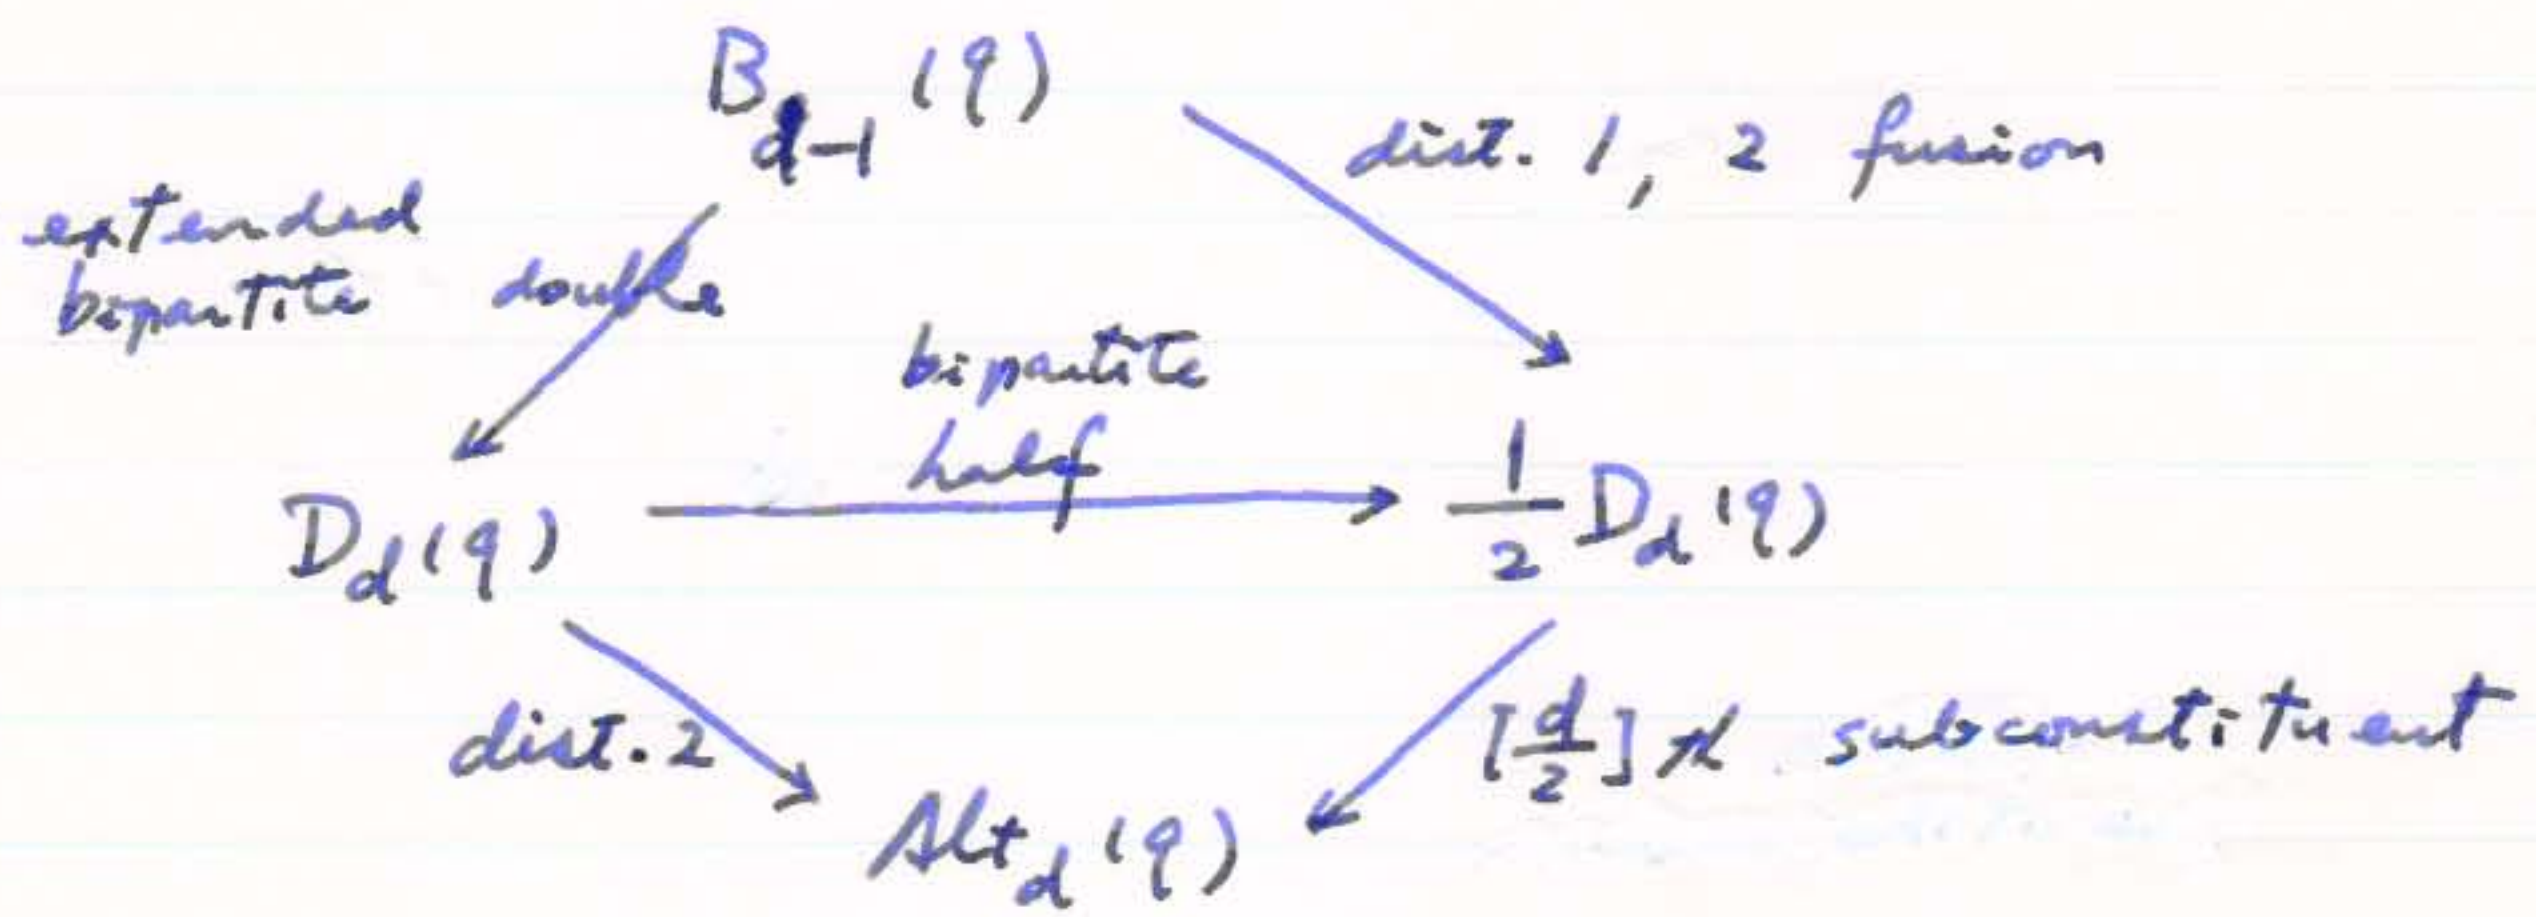 B_{d-1}(q)
dist. 1, 2 fusion
extended
bipartite double
bipartite
half
D_d(q)
\frac{1}{2}D_d(q)
dist. 2
[\frac{d}{2}]th subconstituent
Alt_d(q)